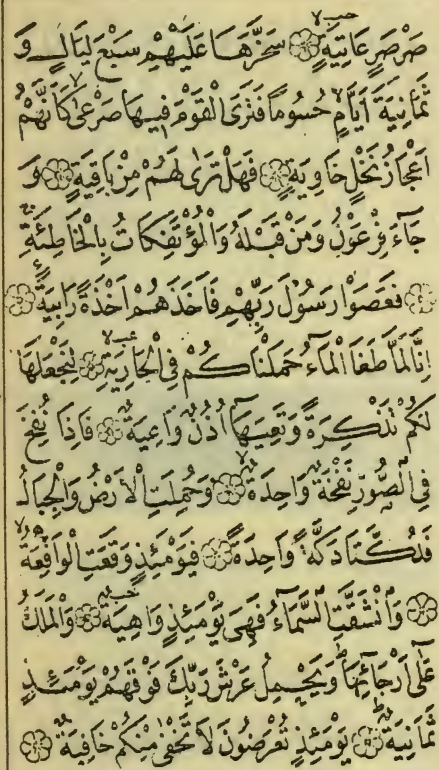 صَرْصَرٍ عَاتِيَةٍ ۝ سَخَّرَهَا عَلَيْهِمْ سَبْعَ لَيَالٍ وَ
ثَمَانِيَةَ اَيَّامٍ حُسُومًا فَتَرَى الْقَوْمَ فِيهَا صَرْعٰى كَاَنَّهُمْ
اَعْجَازُ نَخْلٍ خَاوِيَةٍ ۝ فَهَلْ تَرٰى لَهُمْ مِنْ بَاقِيَةٍ ۝ وَ
جَاءَ فِرْعَوْنُ وَمَنْ قَبْلَهُ وَالْمُؤْتَفِكَاتُ بِالْخَاطِئَةِ
۝ فَعَصَوْا رَسُولَ رَبِّهِمْ فَاَخَذَهُمْ اَخْذَةً رَابِيَةً ۝
اِنَّا لَمَّا طَغَا الْمَاءُ حَمَلْنَاكُمْ فِي الْجَارِيَةِ ۝ لِنَجْعَلَهَا
لَكُمْ تَذْكِرَةً وَتَعِيَهَا اُذُنٌ وَاعِيَةٌ ۝ فَاِذَا نُفِخَ
فِي الصُّورِ نَفْخَةٌ وَاحِدَةٌ ۝ وَحُمِلَتِ الْاَرْضُ وَالْجِبَالُ
فَدُكَّتَا دَكَّةً وَاحِدَةً ۝ فَيَوْمَئِذٍ وَقَعَتِ الْوَاقِعَةُ
۝ وَانْشَقَّتِ السَّمَاءُ فَهِيَ يَوْمَئِذٍ وَاهِيَةٌ ۝ وَالْمَلَكُ
عَلٰى اَرْجَائِهَا وَيَحْمِلُ عَرْشَ رَبِّكَ فَوْقَهُمْ يَوْمَئِذٍ
ثَمَانِيَةٌ ۝ يَوْمَئِذٍ تُعْرَضُونَ لَا تَخْفٰى مِنْكُمْ خَافِيَةٌ ۝